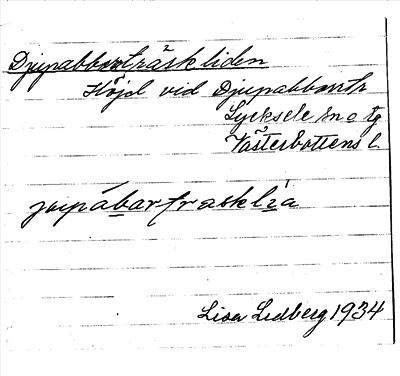 Djupabborrträskliden
Höjd vid Djupabborrtr
Lycksele sn o tg
Västerbottens l.
jupábarfrasklia
Lisa Lidberg 1934